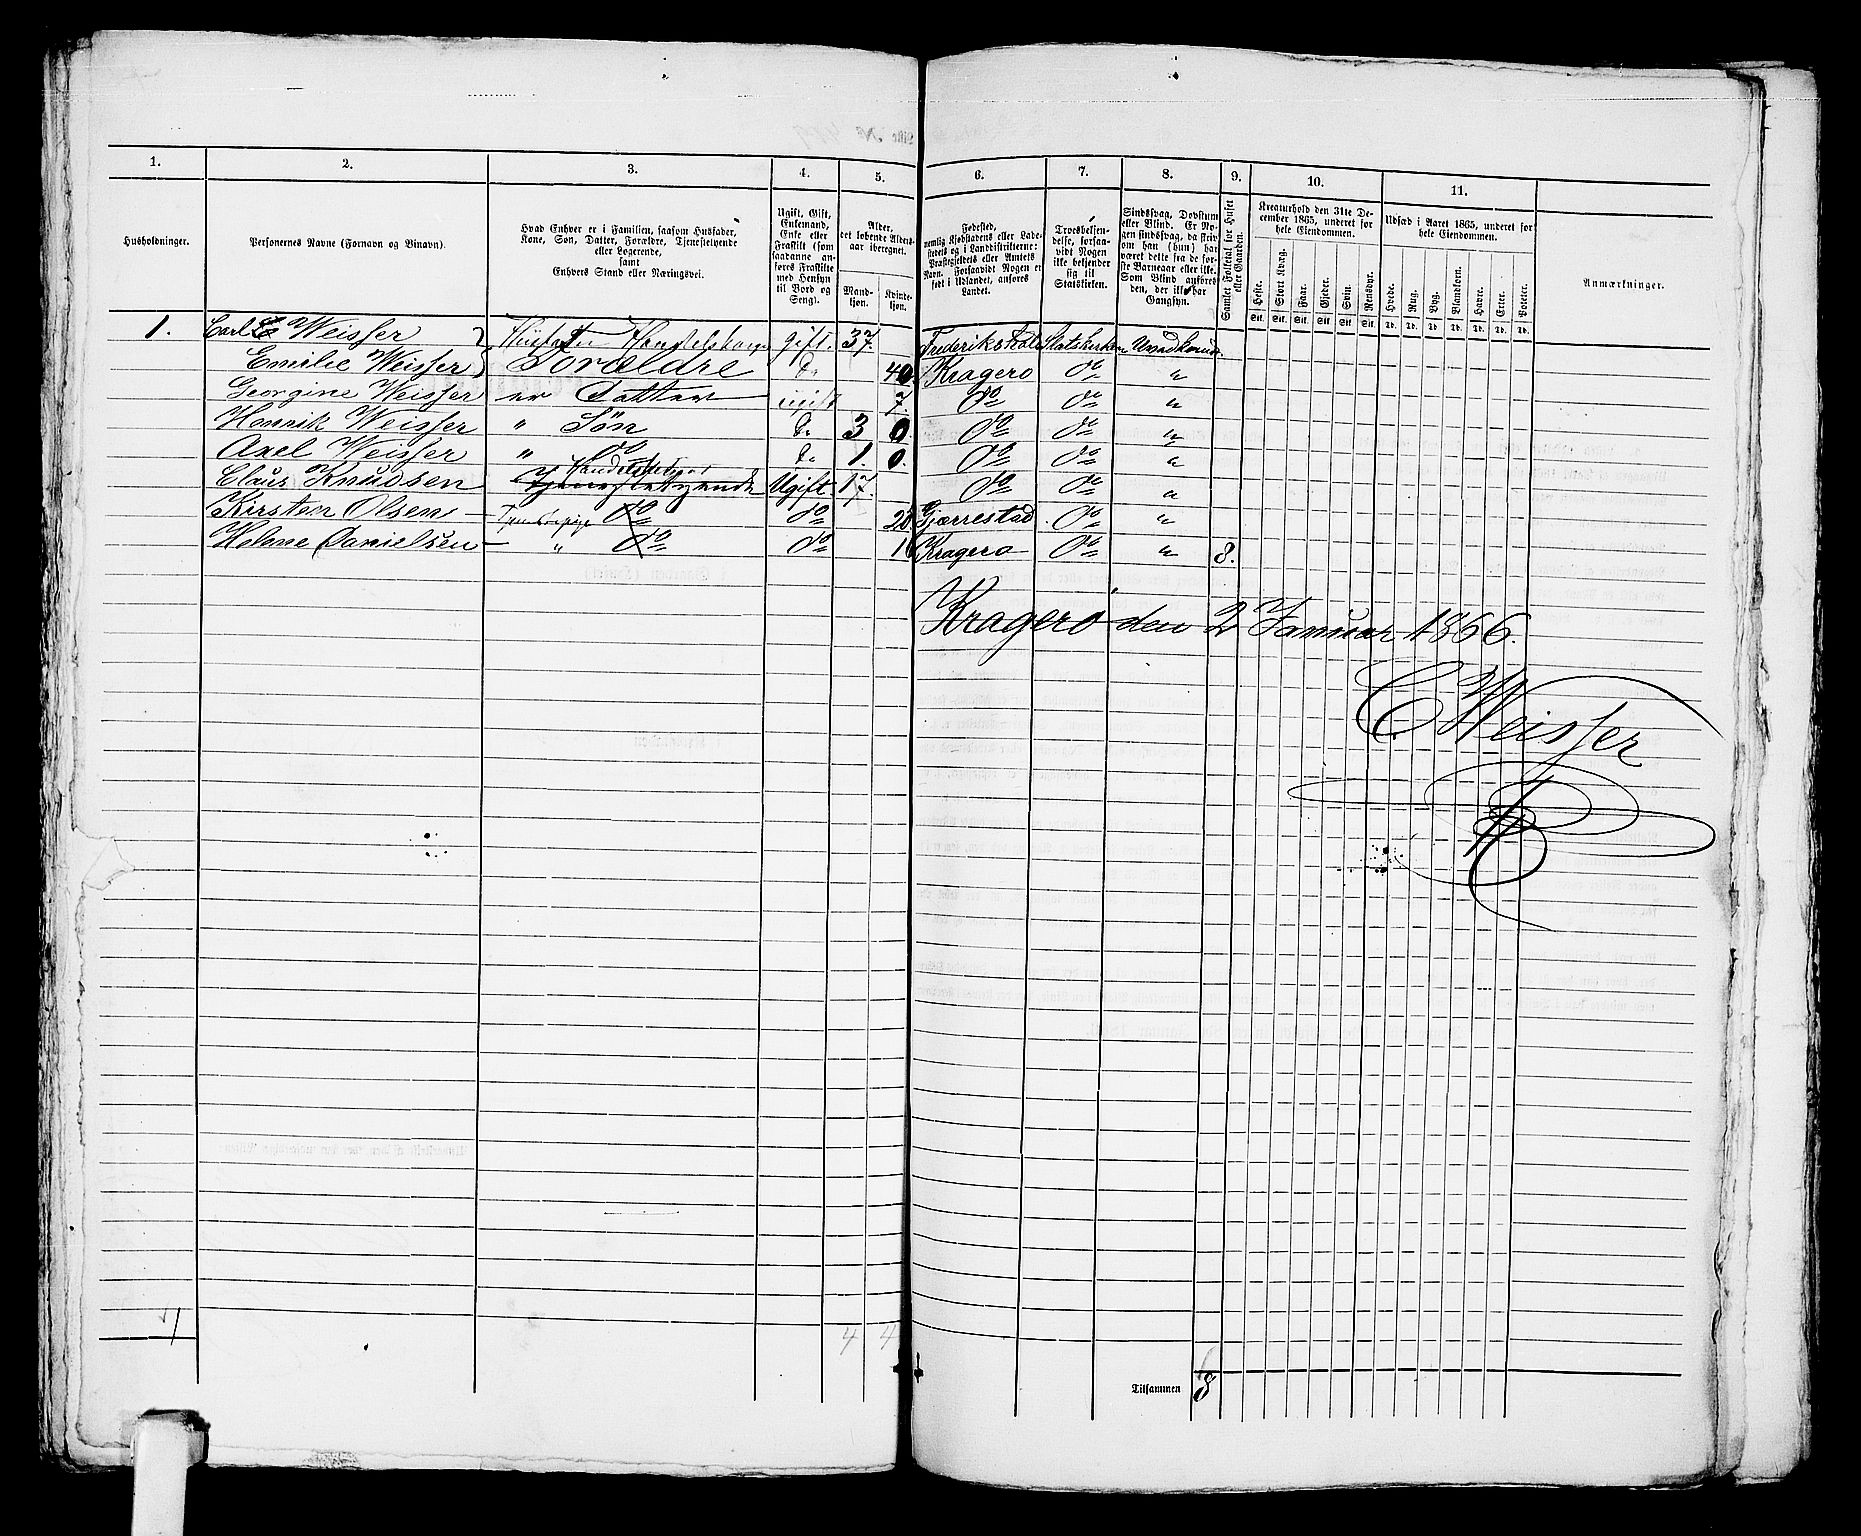 Liste № 479
1. 2. 3. 4. 5. 6. 7. 8. 9. 10. 11.
Husholdninger.
Personernes Navne (Fornavn og Binavn).
Hvad Enhver er i Familien, saasom Husfader,
Kone, Søn, Datter, Forældre, Tjenstetyende
eller Logerende,
samt
Enhvers Stand eller Næringsvei.
Ugift, Gift,
Enkemand,
Enke eller
Fraskilt (som
saadanne an-
føres Fraskilte
med Hensyn
til Bord og
Seng).
Alder,
det løbende Alders-
aar iberegnet.
Mand-
kjøn.
Kvinde-
kjøn.
Fødested,
nemlig Kjøbstadens eller Lade-
stedets og i Landdistrikterne:
Præstegjeldets eller Amtets
Navn. Forsaavidt Nogen er
født i Udlandet, anføres
Landet.
Troesbekjen-
delse, forsaa-
vidt Nogen
ikke bekjender
sig til
Statskirken.
Sindssvag, Døvstum
eller Blind. Er No-
gen sindssvag, da skriv
om han (hun) har
været dette fra de før-
ste Barneaar eller ikke.
Som Blind anføres
den, der ikke har
Gangsyn.
Samlet Folketal for Huset
eller Gaarden.
Kreaturhold den 31te De-
cember 1865, underet for
hele Eiendommen.
Heste. Stort Kvæg. Faar. Gjeder. Svin. Rensdyr.
Stk. Stk. Stk. Stk. Stk. Stk.
Udsæd i Aaret 1865, underet for
hele Eiendommen.
Hvede. Rug. Byg. Blandkorn. Havre. Erter. Poteter.
Td. Td. Td. Td. Td. Td. Td.
Anmærkninger.
1. Carl C Weisser Gift. 37. Frederikshald Statskirken
Emilie Weisser Forældre Do 40 Kragerø do "
Georgine Weisser er Datter ugift 7. do do "
Henrik Weisser " Søn Do 3 0. do do "
Axel Weisser " do Do 1. 0. do do "
Claus Knudsen Tjenestetyende Ugift. 17. do do "
Kirsten Olsen Tjenestepige do do 28. Gjærrestad do "
Helene Danielsen " do do 16 Kragerø do " 8.
Kragerø den 2 Januar 1866.
C Weisser
1 4 4
Tilsammen 8